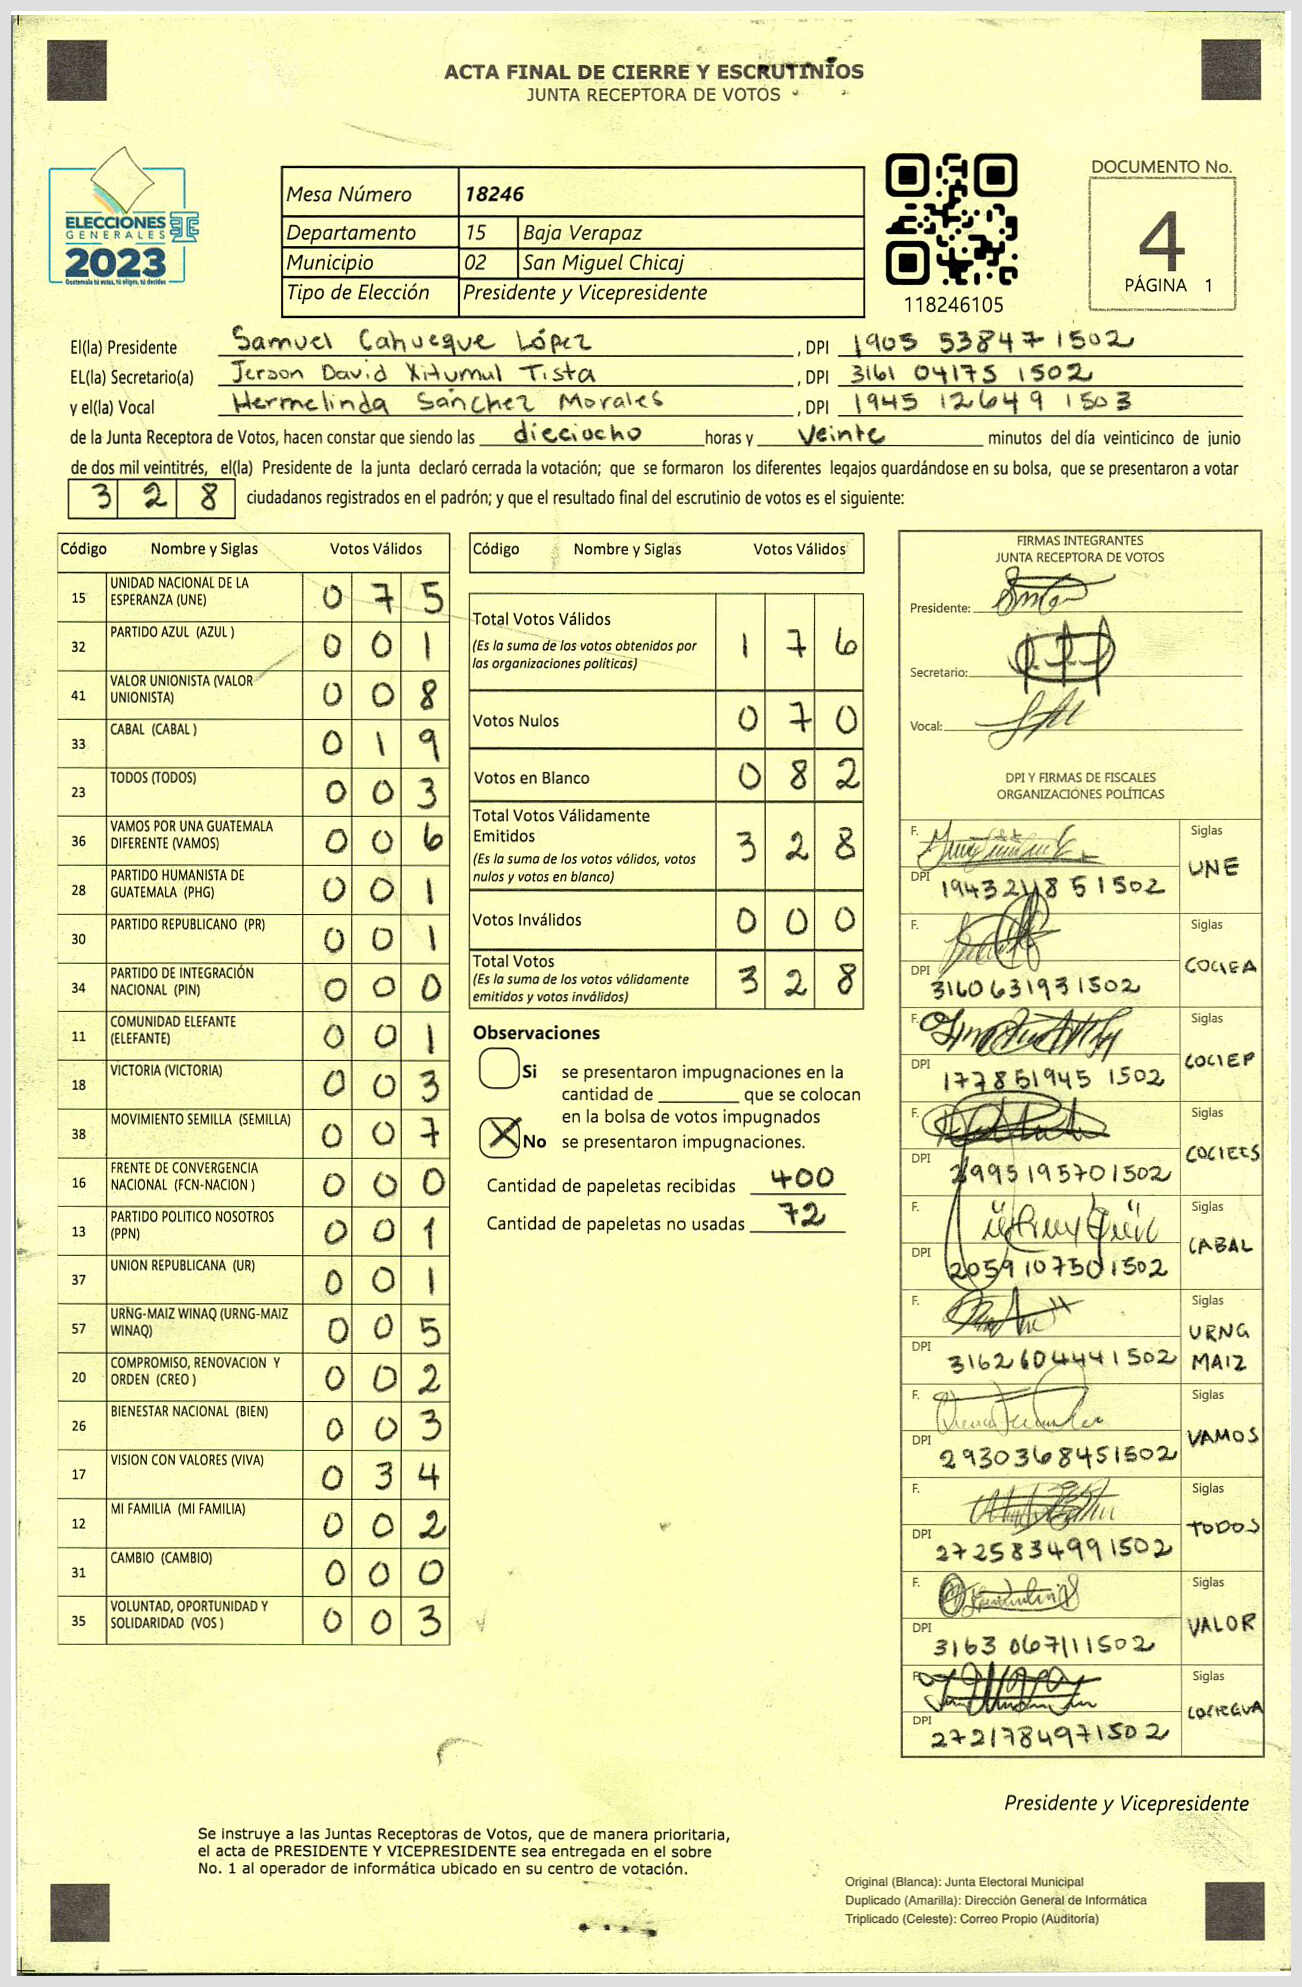 ACTA FINAL DE CIERRE Y ESCRUTINIOS
JUNTA RECEPTORA DE VOTOS
ELECCIONES
GENERALES
2023
Guatemala tú votas, tú eliges, tú decides
Mesa Número 18246
Departamento 15 Baja Verapaz
Municipio 02 San Miguel Chicaj
Tipo de Elección Presidente y Vicepresidente
118246105
DOCUMENTO No.
4
PÁGINA 1
El(la) Presidente Samuel Cahueque López , DPI 1905 53847 1502
EL(la) Secretario(a) Jerson David Xitumul Tista , DPI 3161 04175 1502
y el(la) Vocal Hermelinda Sánchez Morales , DPI 1945 12649 1503
de la Junta Receptora de Votos, hacen constar que siendo las dieciocho horas y veinte minutos del día veinticinco de junio
de dos mil veintitrés, el(la) Presidente de la junta declaró cerrada la votación; que se formaron los diferentes legajos guardándose en su bolsa, que se presentaron a votar
3 2 8 ciudadanos registrados en el padrón; y que el resultado final del escrutinio de votos es el siguiente:
Código Nombre y Siglas Votos Válidos
15 UNIDAD NACIONAL DE LA ESPERANZA (UNE) 0 7 5
32 PARTIDO AZUL (AZUL ) 0 0 1
41 VALOR UNIONISTA (VALOR UNIONISTA) 0 0 8
33 CABAL (CABAL ) 0 1 9
23 TODOS (TODOS) 0 0 3
36 VAMOS POR UNA GUATEMALA DIFERENTE (VAMOS) 0 0 6
28 PARTIDO HUMANISTA DE GUATEMALA (PHG) 0 0 1
30 PARTIDO REPUBLICANO (PR) 0 0 1
34 PARTIDO DE INTEGRACIÓN NACIONAL (PIN) 0 0 0
11 COMUNIDAD ELEFANTE (ELEFANTE) 0 0 1
18 VICTORIA (VICTORIA) 0 0 3
38 MOVIMIENTO SEMILLA (SEMILLA) 0 0 7
16 FRENTE DE CONVERGENCIA NACIONAL (FCN-NACION ) 0 0 0
13 PARTIDO POLITICO NOSOTROS (PPN) 0 0 1
37 UNION REPUBLICANA (UR) 0 0 1
57 URNG-MAIZ WINAQ (URNG-MAIZ WINAQ) 0 0 5
20 COMPROMISO, RENOVACION Y ORDEN (CREO ) 0 0 2
26 BIENESTAR NACIONAL (BIEN) 0 0 3
17 VISION CON VALORES (VIVA) 0 3 4
12 MI FAMILIA (MI FAMILIA) 0 0 2
31 CAMBIO (CAMBIO) 0 0 0
35 VOLUNTAD, OPORTUNIDAD Y SOLIDARIDAD (VOS ) 0 0 3
Código Nombre y Siglas Votos Válidos
Total Votos Válidos 1 7 6
(Es la suma de los votos obtenidos por
las organizaciones políticas)
Votos Nulos 0 7 0
Votos en Blanco 0 8 2
Total Votos Válidamente
Emitidos 3 2 8
(Es la suma de los votos válidos, votos
nulos y votos en blanco)
Votos Inválidos 0 0 0
Total Votos 3 2 8
(Es la suma de los votos válidamente
emitidos y votos inválidos)
Observaciones
Si se presentaron impugnaciones en la
cantidad de ________ que se colocan
en la bolsa de votos impugnados
X No se presentaron impugnaciones.
Cantidad de papeletas recibidas 400
Cantidad de papeletas no usadas 72
FIRMAS INTEGRANTES
JUNTA RECEPTORA DE VOTOS
Presidente:
Secretario:
Vocal:
DPI Y FIRMAS DE FISCALES
ORGANIZACIONES POLÍTICAS
F. Siglas
DPI UNE
F. Siglas
DPI 3160631931502 COCIEA
F. Siglas
DPI 177851945 1502 COCIEP
F. Siglas
DPI 2995195701502 COCIEES
F. Siglas
DPI 2059107501502 CABAL
F. Siglas
DPI 3162604441502 URNG MAIZ
F. Siglas
DPI 2930368451502 VAMOS
F. Siglas
DPI 2725834991502 TODOS
F. Siglas
DPI 3163 067111502 VALOR
F. Siglas
DPI 2721784971502
Presidente y Vicepresidente
Se instruye a las Juntas Receptoras de Votos, que de manera prioritaria,
el acta de PRESIDENTE Y VICEPRESIDENTE sea entregada en el sobre
No. 1 al operador de informática ubicado en su centro de votación.
Original (Blanca): Junta Electoral Municipal
Duplicado (Amarilla): Dirección General de Informática
Triplicado (Celeste): Correo Propio (Auditoría)